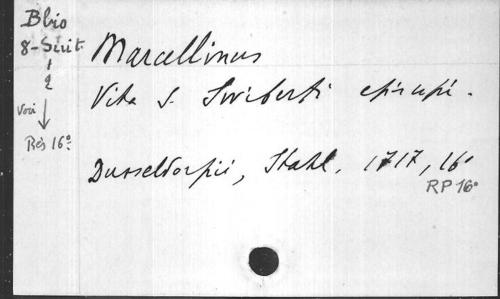 Bbio
8-Suit.
1
2
Voir
Rés 16º
Marcellinus
Vita S. Swiberti episcopi.
Dusseldorpii, Stahl. 1717, 16º
RP 16º